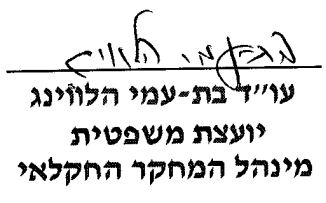 עו"ד בת-עמי הלווינג
יועצת משפטית
מינהל המחקר החקלאי